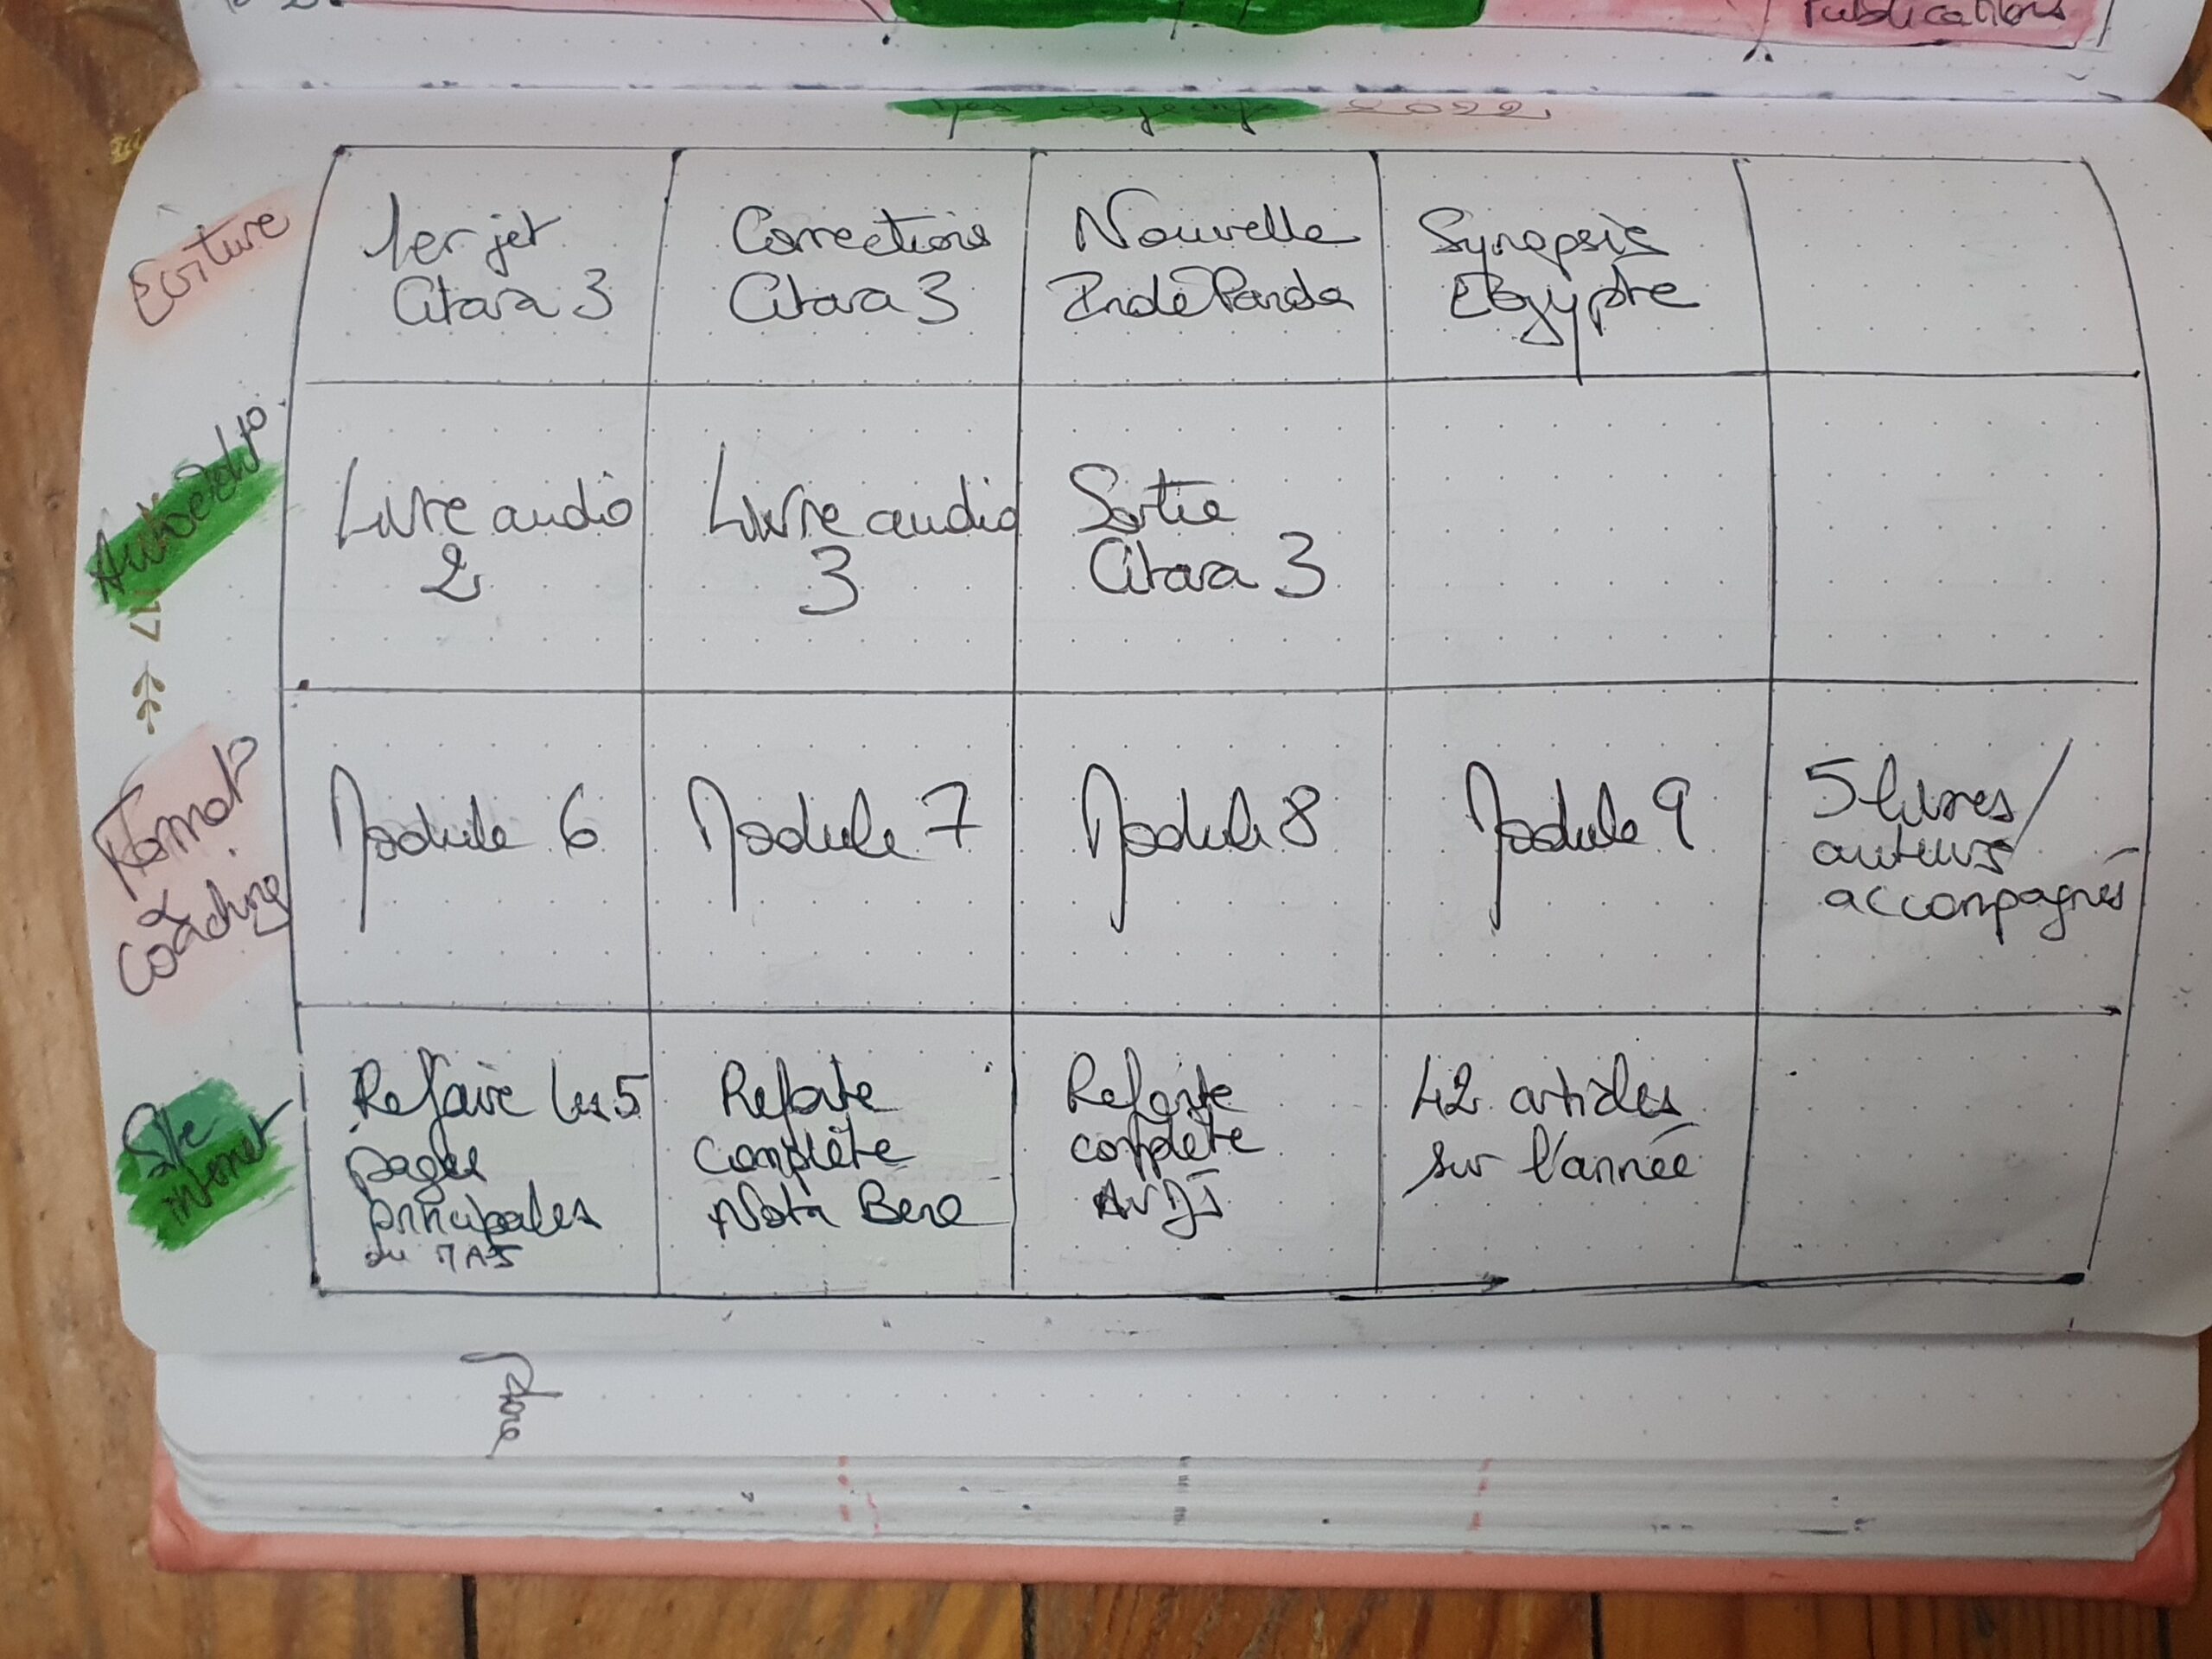 Publications
Mes objectifs 2022
Ecriture
1er jet
Citara 3
Corrections
Citara 3
Nouvelle
IndéPanda
Synopsis
Egypte
Autoédit°
Livre audio
2
Livre audio
3
Sortie
Citara 3
Format°
&
coaching
Module 6
Module 7
Module 8
Module 9
5 livres/
auteurs/
accompagnés
Site
internet
Refaire les 5
pages
principales
du MAJ
Refonte
complète
Nota Bene
Refonte
complète
42 articles
sur l'année